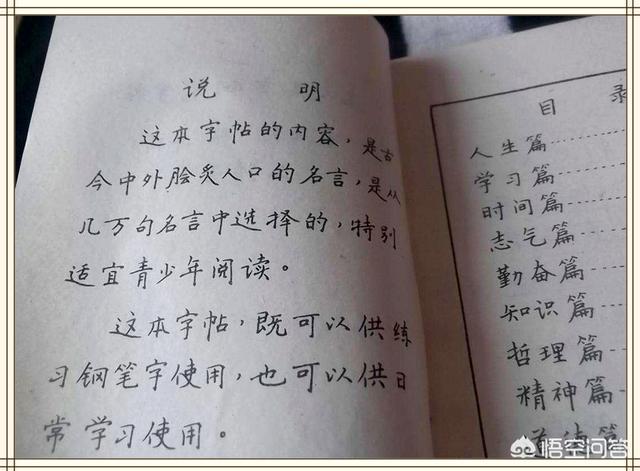 说 明
这本字帖的内容，是古
今中外脍炙人口的名言，是从
几万句名言中选择的，特别
适宜青少年阅读。
这本字帖，既可以供练
习钢笔字使用，也可以供日
常学习使用。
目 录
人生篇
学习篇
时间篇
志气篇
勤奋篇
知识篇
哲理篇
精神篇
道德篇
悟空问答